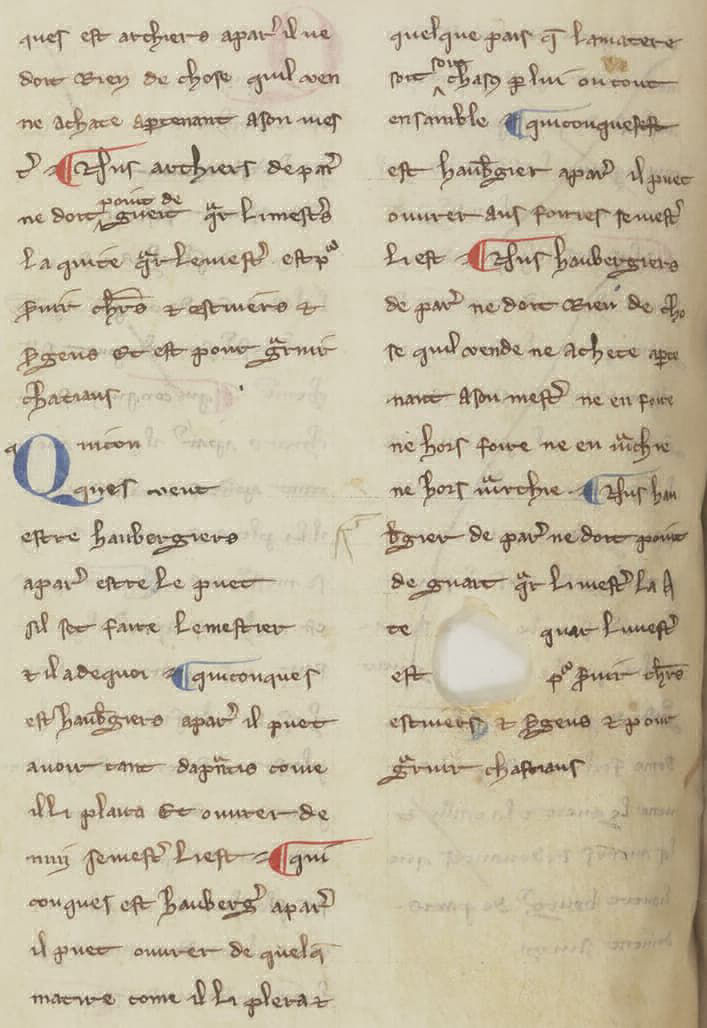 ques est archiers a par̾ il ne
doit rien de chose quil ven
ne achate ap̲tenant a son mes
t̾ ¶ Nus archiers de par̾
ne doit point de gueit q̾r li mest̾s
la quite q̾r le mest̾ est p͛
s̾uir ch̅rs ⁊ escuiers ⁊
s̾gens Et est pour g̾rnir
chatiaus
Quicon
ques veut
estre haubergiers
a par̾ estre le puet
sil set faire le mestier
⁊ il a de quoi ¶ quiconques
est haub̾giers a par̾ il puet
avoir tant dap̾ntis come
il li plaira Et ouurer de
nuis se mest̾ li est ¶ qui
conques est hauberg̾ a par̾
il puet ouurer de quelq̅
matire come il li plera ⁊
quelque pais q̅ la matere
soit soit chasc̾ p̲ lui ou tout
ensamble ¶ quiconques est
est haub̾gier a par̾ il puet
ouurer aus foiries se mest̾
li est ¶ Nus haubergiers
de par̾ ne doit rien de cho
se quil vende ne achete ap̲te
nant a son mest̾ ne en foire
ne hors foire ne en m̾chie
ne hors m̾rchie ¶ Nus hau
b̾gier de par̾ ne doit point
de guait q̾r li mest̾ la
te quar li mest̾
est p͛ s̾uir ch̅rs
escuiers ⁊ s̾gens ⁊ pour
g̾rnir chastiaus